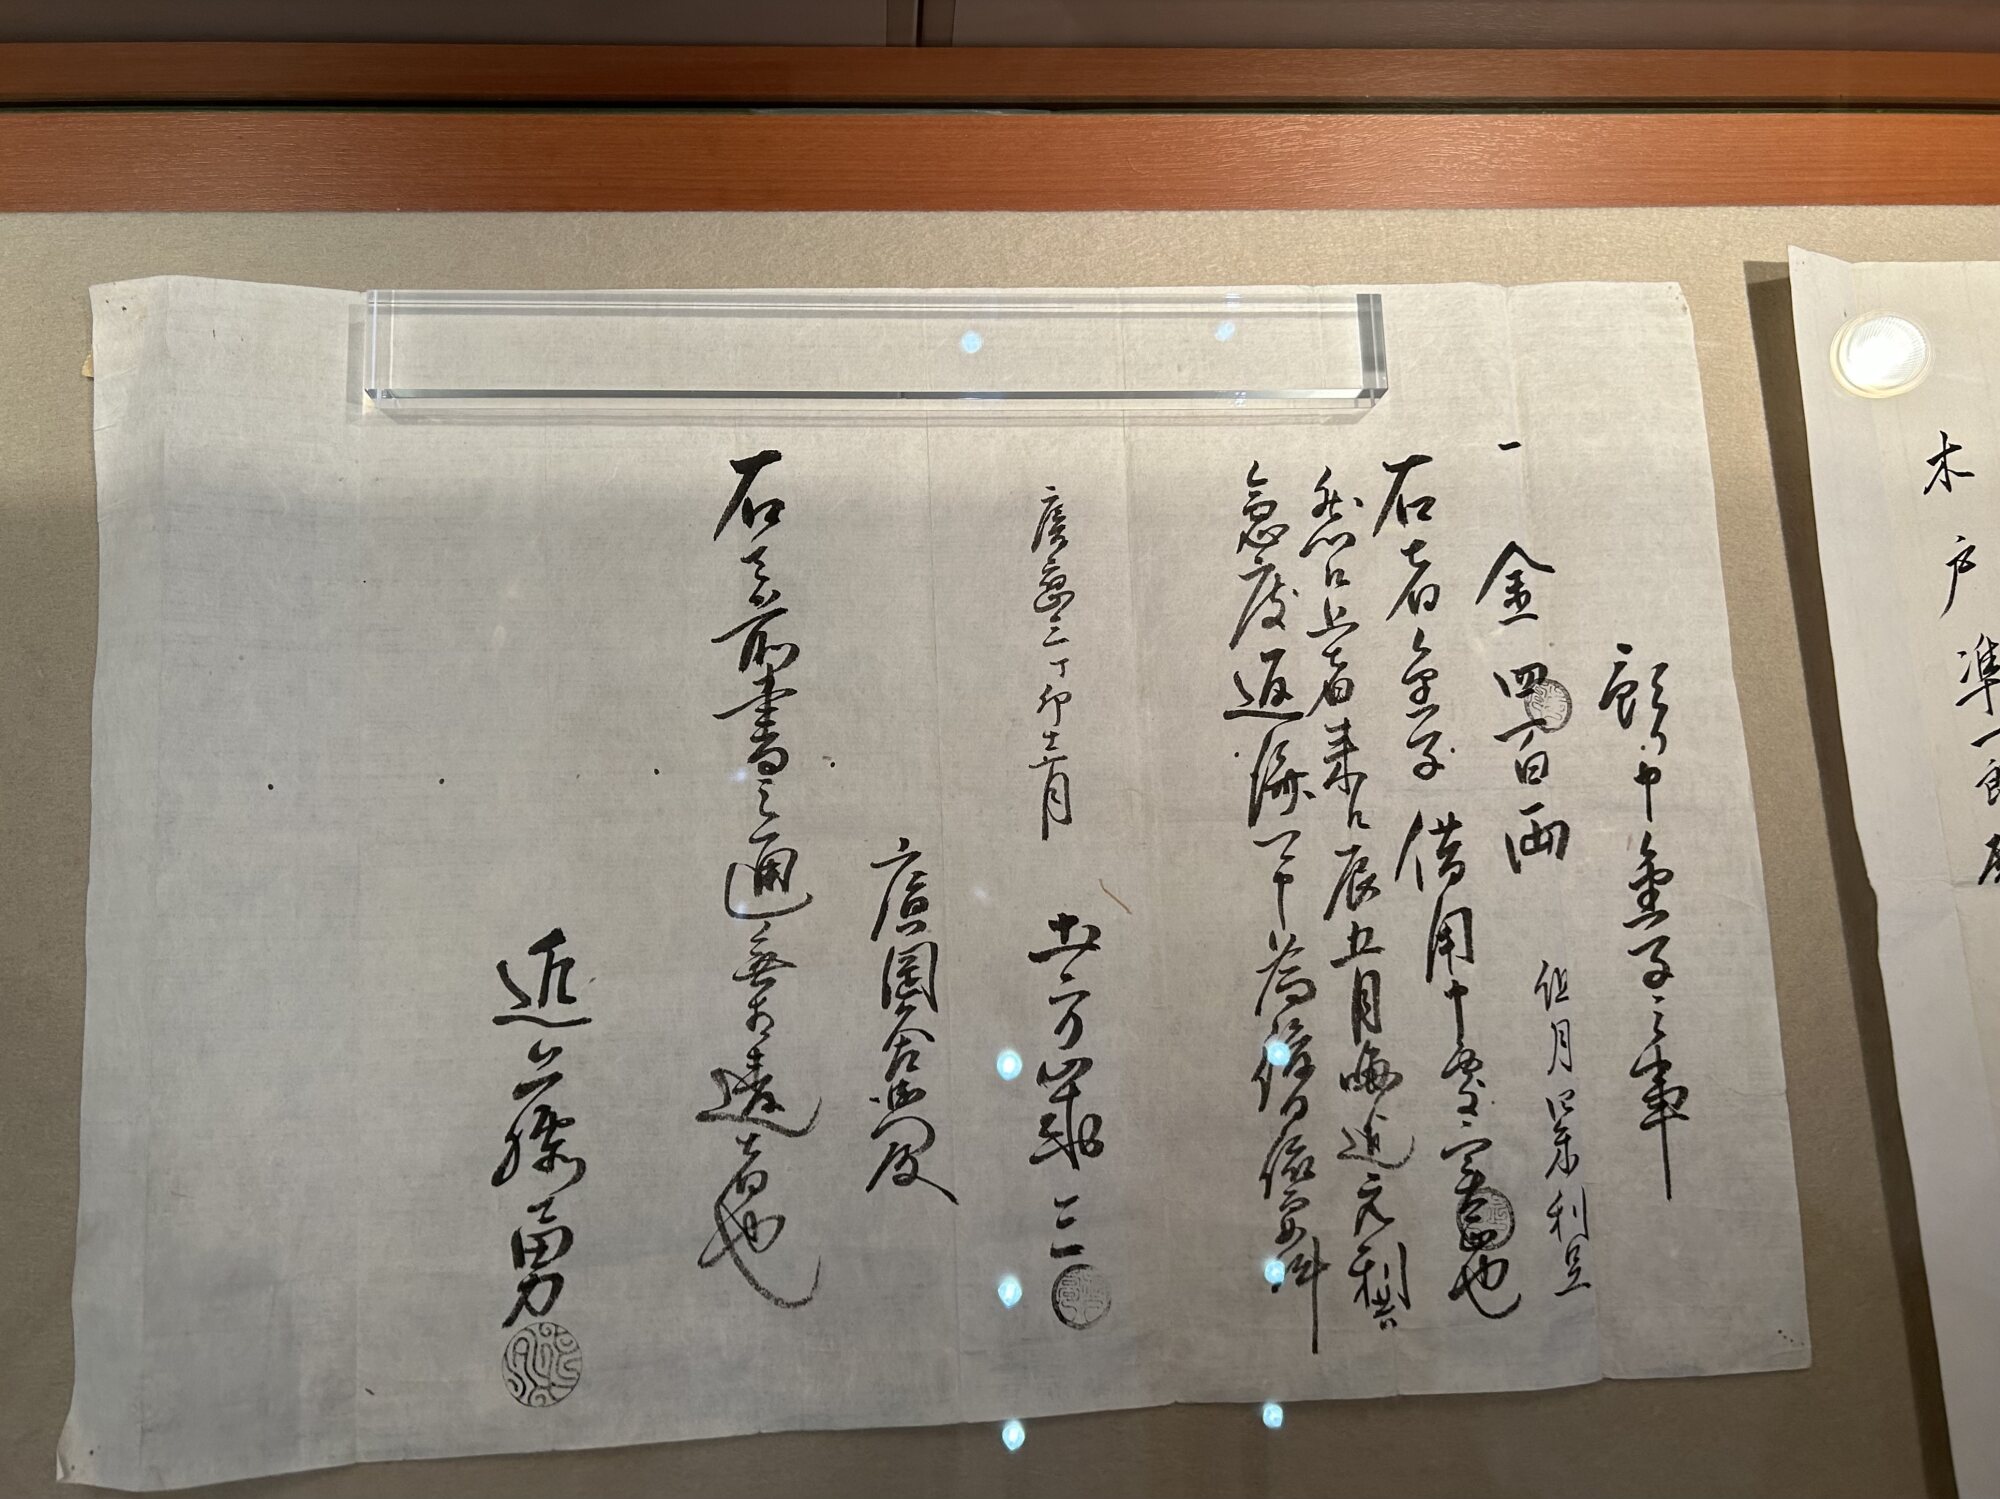 木戸準一郎殿
預り申金子之事
一 金四百両 但月 朱利足
右者金子借用申処実正也
然ル上者来ル辰五月晦迄元利共
急度返済可申為後日依而如件
慶應三丁卯十二月 土方歳三
廣岡 殿
右之前書之通無相違者也
近藤勇